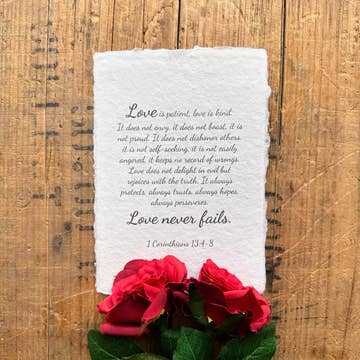 Love is patient, love is kind.
It does not envy, it does not boast, it is
not proud. It does not dishonor others,
it is not self-seeking, it is not easily
angered, it keeps no record of wrongs.
Love does not delight in evil but
rejoices with the truth. It always
protects, always trusts, always hopes,
always perseveres.
Love never fails.
1 Corinthians 13:4-8